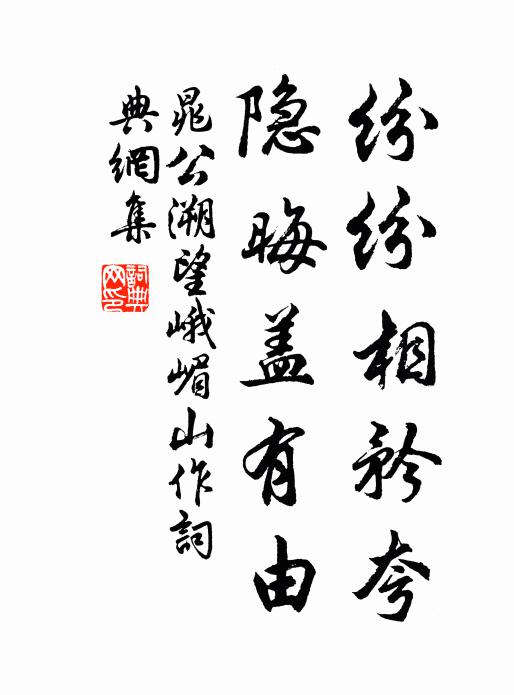 纷纷相矜夸
隐晦盖有由
晁公溯望峨嵋山作詞
典網集
詞典
网印